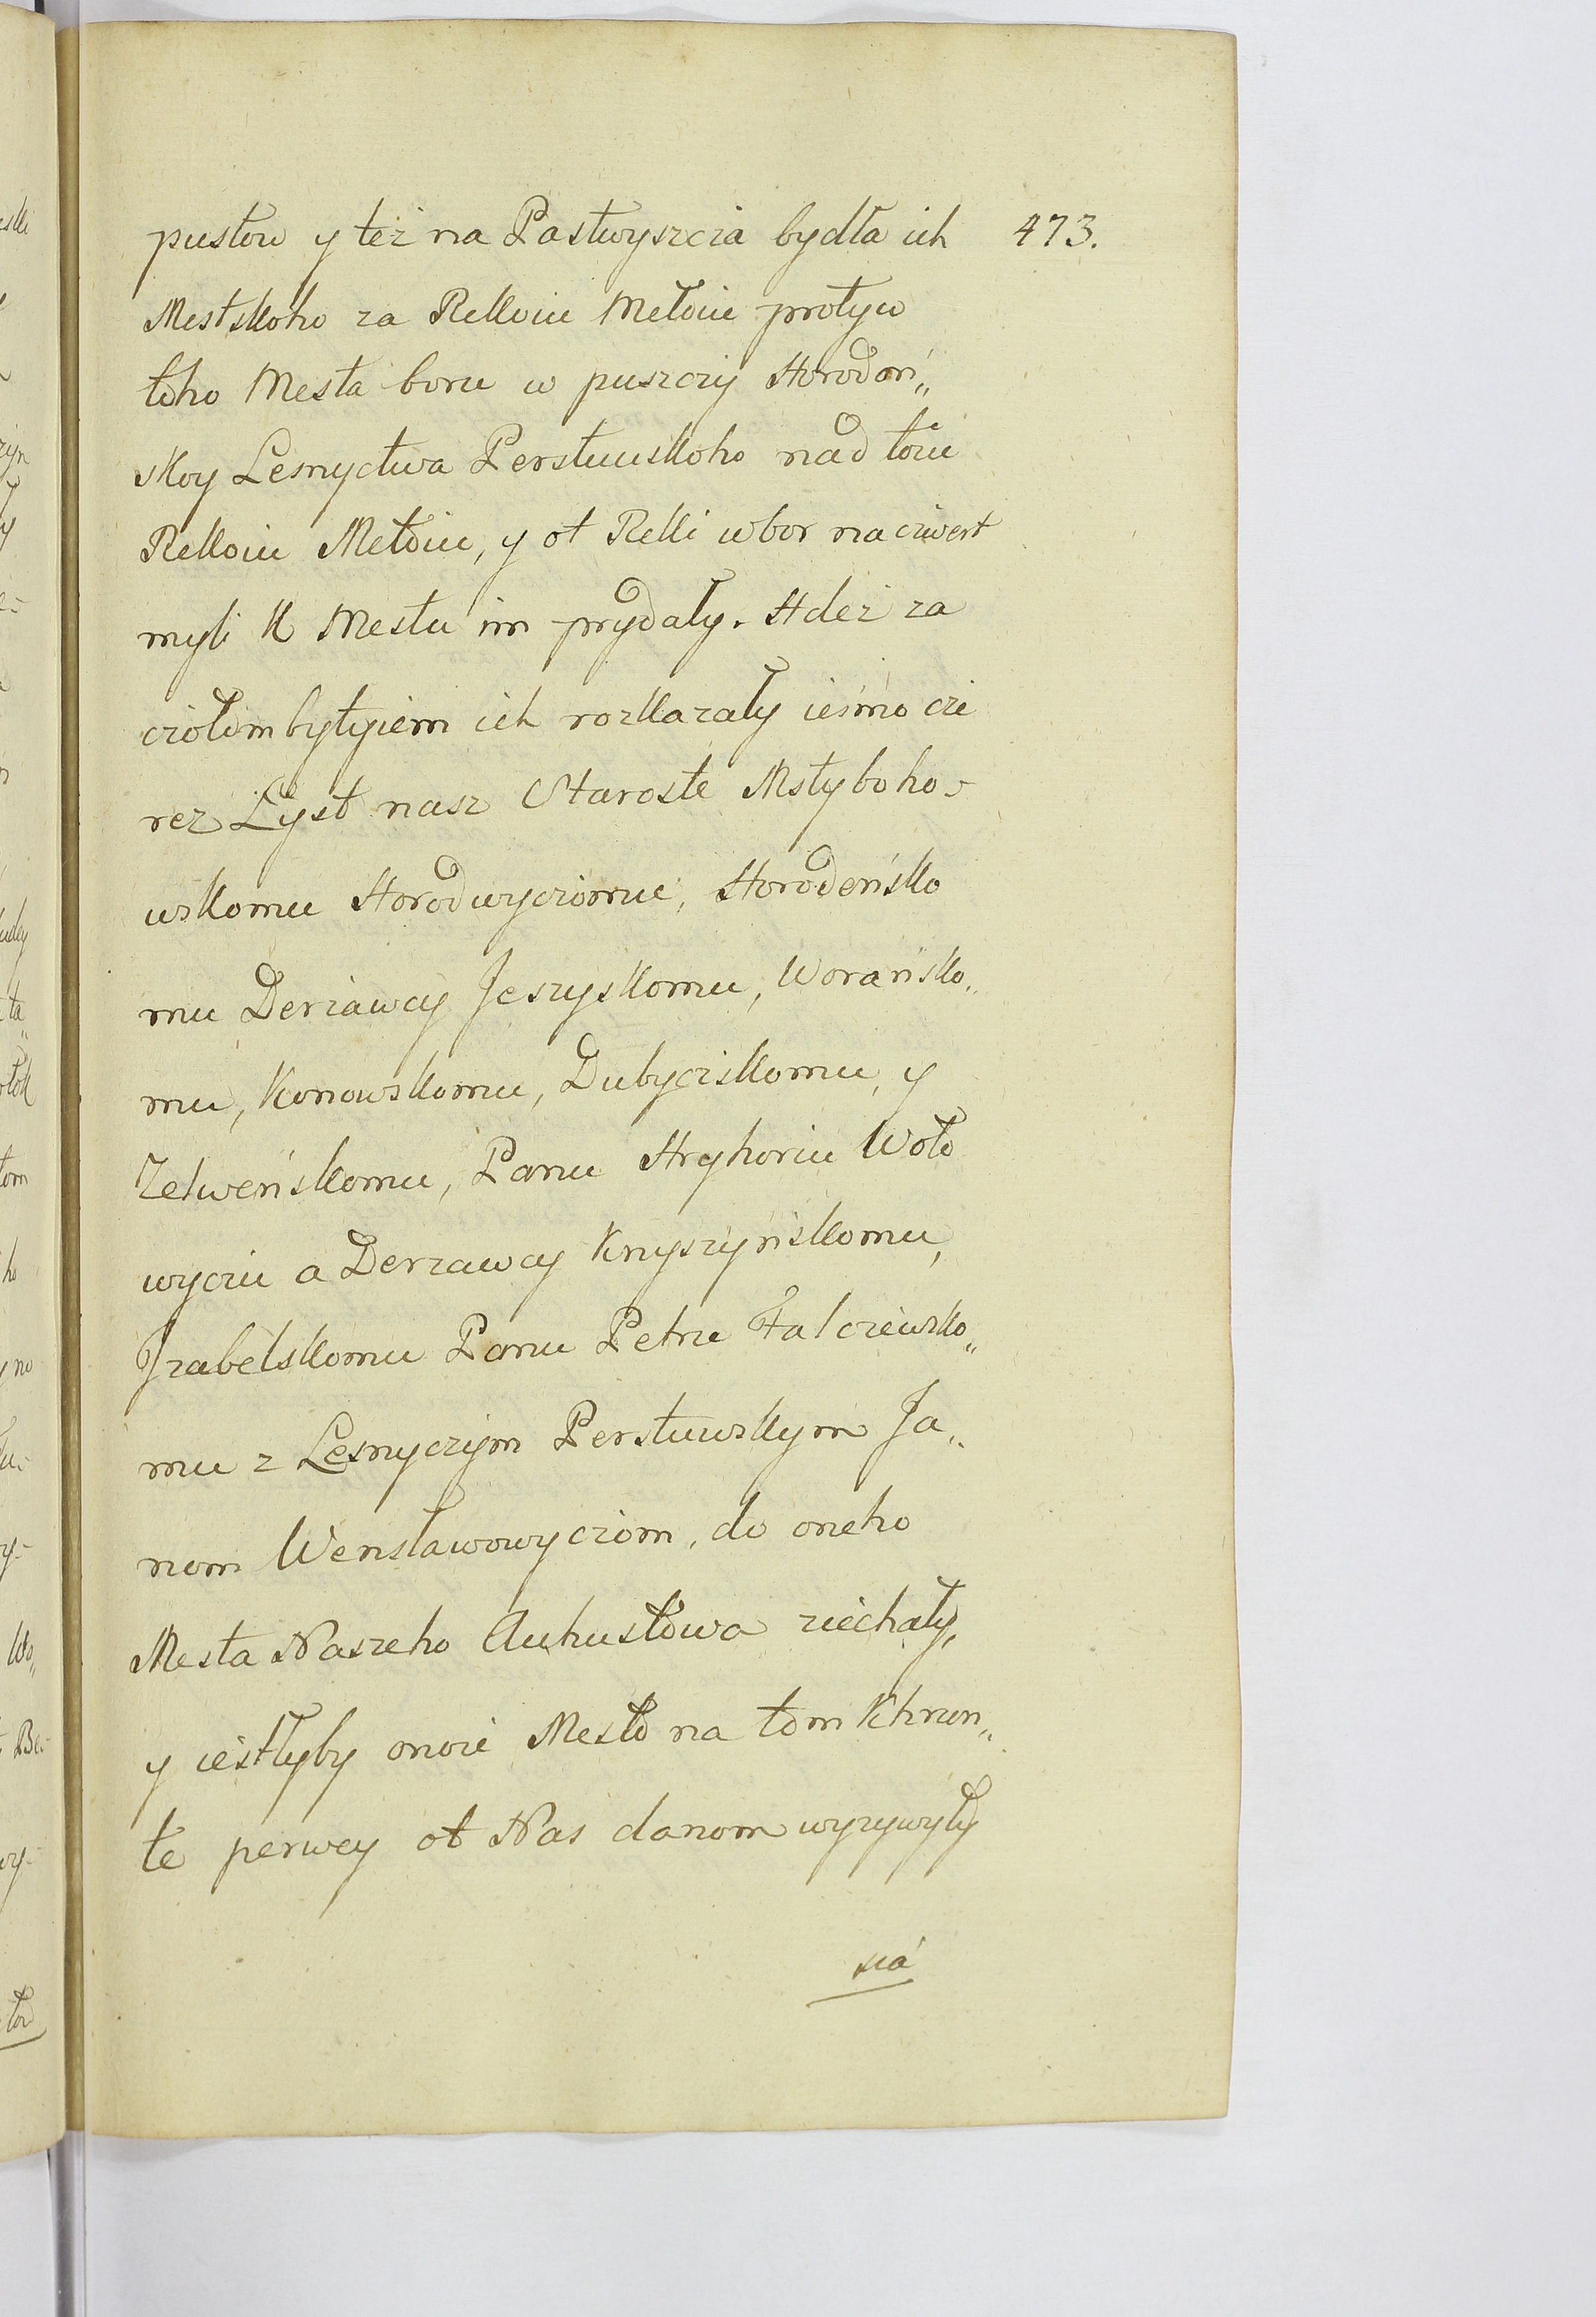 pustow y też na Pastwyszcza bydła ich 473.
Mestskoho za Rekoiu Metoiu protyw
toho Mesta boru w puszczy Horodoń„
skoy Lesnyctwa Perstuńskoho nad toiu
Rekoiu Metoiu, y ot Reki w bor na czwert
myli k Mestu im prydały. Hdeż za
czołombytyiem ich rozkazały ieśmo cze
rez Lyst nasz Staroste Mstyboho-
wskomu Horodwyczomu, Horodeńsko
mu Derżawcy Jeszyskomu, Worańsko„
mu, Konowskomu, Dubyczskomu, y
Zelweńskomu, Panu Hryhoriu Woło
wyczu a Derżawcy Knyszyńskomu,
Izabelskomu Panu Petru Falczewsko„
mu z Lesnyczym Perstuwskym Ja„
nom Wensławowyczom, do oneho
Mesta Naszeho Auhustowa ziechały,
y iestlyby onoie Mesto na tom Khrun„
te perwey ot Nas danom wyżywyty
sia